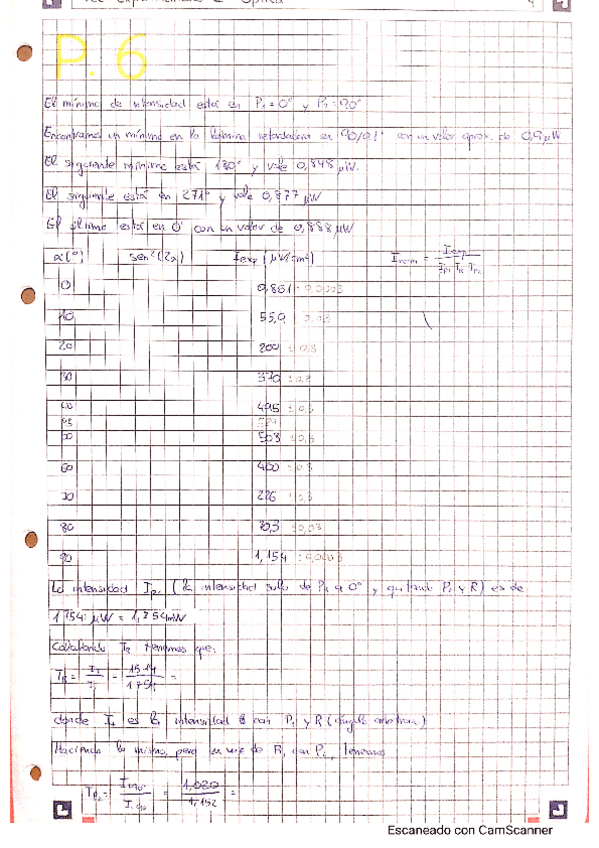 Óptica 4
P. 6
El mínimo de intensidad está en P₁ = 0° y P₂ = 90°
Encontramos un mínimo en la lámina retardadora en con un valor aprox. de 0,9 μW
El siguiente mínimo está 180° y vale 0,848 μW.
El siguiente está en 271° y vale 0,877 μW
El último está en 0° con un valor de 0,888 μW
α(°) sen²(2α) I exp (μW/cm²) I norm = I exp / I P₁ T R T P₂
0 0,861 ± 0,0003
10 55,9 ± 0,03
20 200 ± 0,3
30 370 ± 0,3
40 495 ± 0,3
45 529
50 503 ± 0,3
60 400 ± 0,3
70 276 ± 0,3
80 70,3 ± 0,03
90 1,154 ± 0,0003
La intensidad I P₁ (la intensidad solo de P₁ a 0° y quitando P₂ y R) es de
1754 μW = 1,754 mW
Calculando T R tenemos que:
T R = = 1514 / 1754 =
donde es la intensidad con P₁ y R
Haciendo lo mismo, pero en vez de R, con P₂, tenemos
T P₂ = = 1,080 / 1,152 =
Escaneado con CamScanner